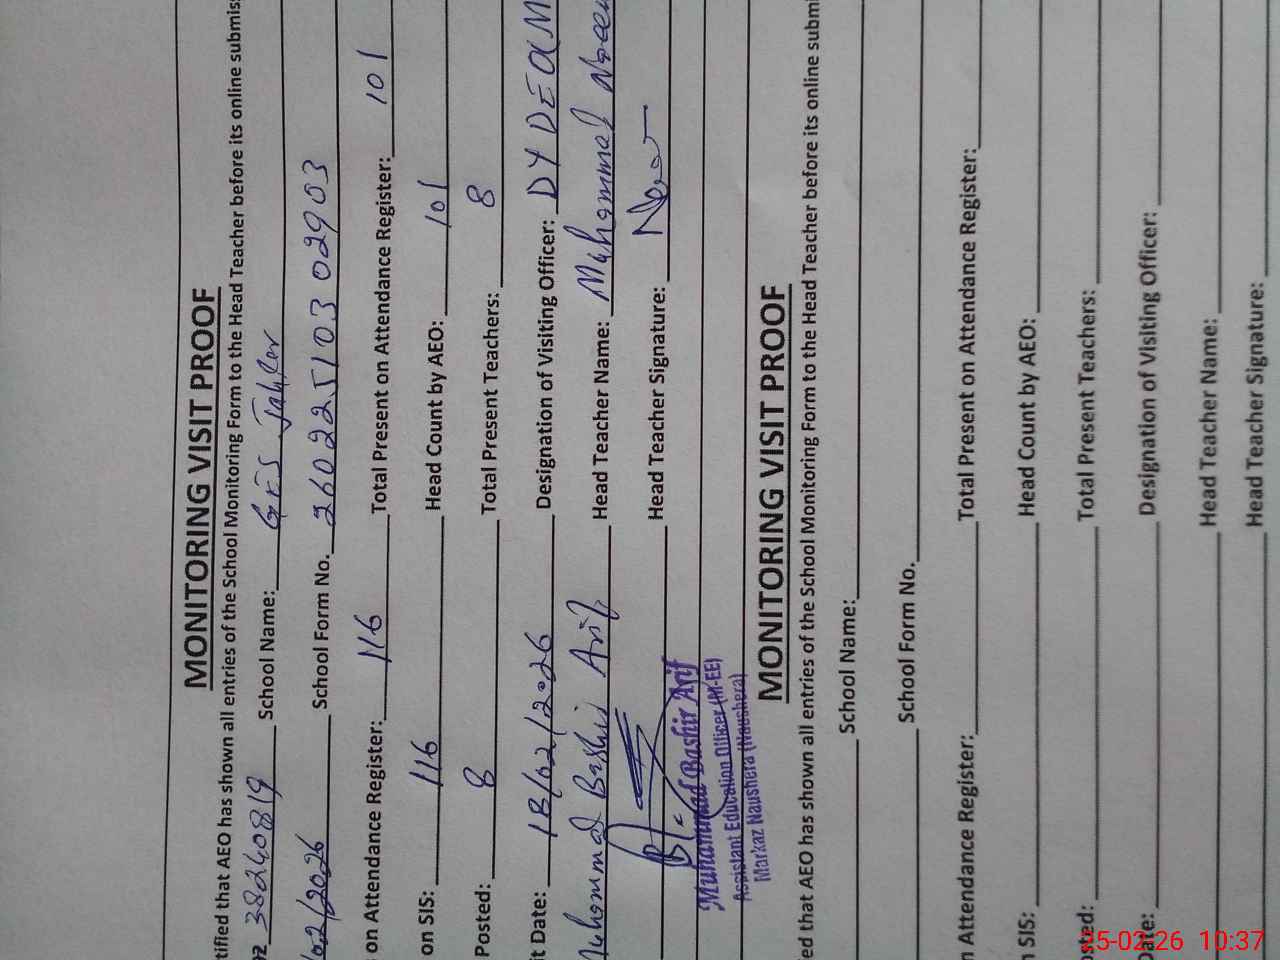 MONITORING VISIT PROOF
tified that AEO has shown all entries of the School Monitoring Form to the Head Teacher before its online submis
38240819 School Name: GES
02/2026 School Form No. 2602251030 2903
on Attendance Register: 116 Total Present on Attendance Register: 101
on SIS: 116 Head Count by AEO: 101
Posted: 8 Total Present Teachers: 8
it Date: 18/02/2026 Designation of Visiting Officer: DY DEO M
Muhammad Bashir Arif Head Teacher Name: Muhammad Naeem
Head Teacher Signature:
Muhammad Bashir Arif
Assistant Education Officer (M-EE)
Markaz Naushera (Naushera)
MONITORING VISIT PROOF
ed that AEO has shown all entries of the School Monitoring Form to the Head Teacher before its online submi
School Name:
School Form No.
n Attendance Register: Total Present on Attendance Register:
n SIS: Head Count by AEO:
osted: Total Present Teachers:
Date: Designation of Visiting Officer:
Head Teacher Name:
Head Teacher Signature:
25-02-26 10:37